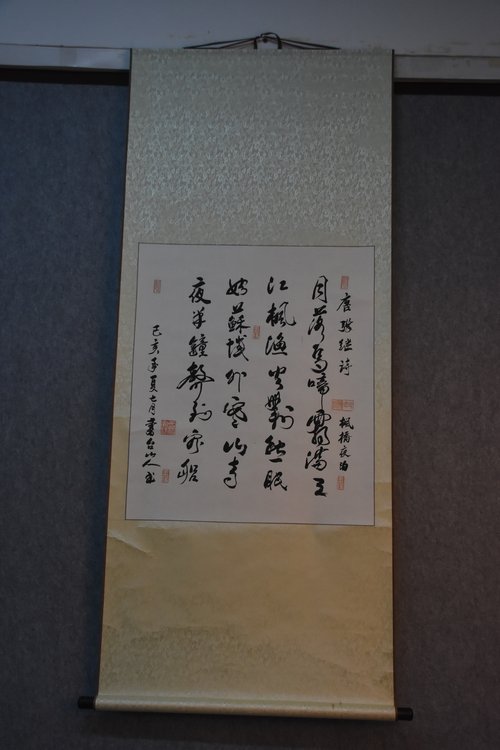 唐張继詩
楓橋夜泊
月落烏啼霜滿天
江楓漁火對愁眠
姑蘇城外寒山寺
夜半鐘聲到客船
己亥年夏七月書台山人书